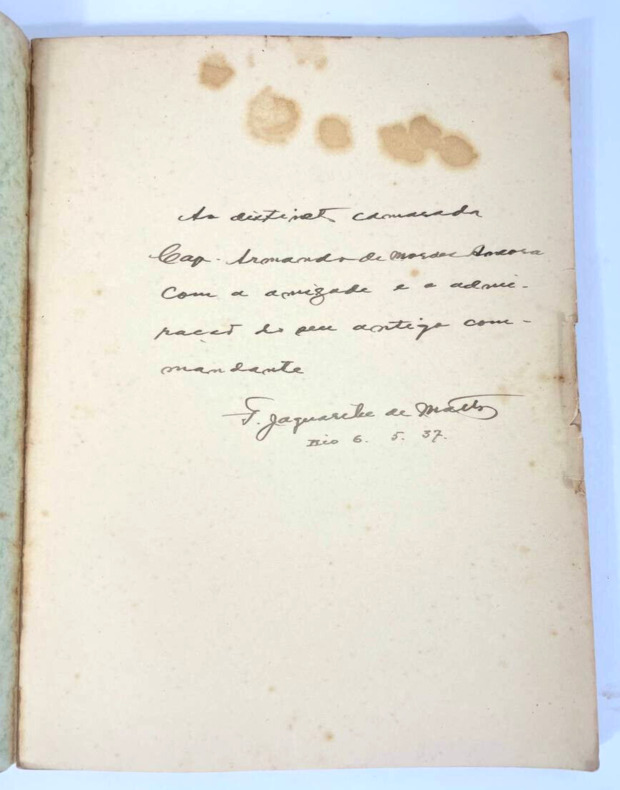 Ao distinct camarada
Cap. Armando de Moraes Ancora
com a amizade e a admi-
ração do seu antigo com-
mandante
F. Jaguaribe de Mattos
Rio 6. 5. 37.